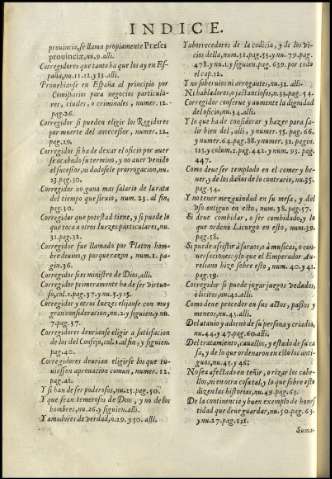 INDICE.
prouincia, se llama propiamente Præses
prouinciæ, nu.9. alli.
Corregidores que tanto ha que los ay en Es-
paña, nu.11.12. y 13. alli.
Prouehianse en España al principio por
Comissarios para negocios particula-
res, ciuiles, o criminales, numer. 12.
pag.26.
Corregidor si pueden eligir los Regidores
por muerte del antecessor, numer. 22.
pag.29.
Corregidor si ha de dexar el oficio por auer
se acabado su termino, y no auer venido
el sucessor, o dadosele prorrogacion, nu.
23. pag.30.
Corregidor no gana mas salario de la rata
del tiempo que siruio, num. 25. al fin,
pag.30.
Corregidor que potestad tiene, y si puede lo
que toca a otros Iuezes particulares, nu.
31. pag.32.
Corregidor fue llamado por Platon hom-
bre diuino, y porque razon, num.1. pa-
gin.36.
Corregidor si es ministro de Dios, alli.
Corregidor primeramente ha de ser virtuo-
so, nu.2. pag.37. y nu.5. y 15.
Corregidor y otros Iuezes eligense con muy
gran consideracion, nu.2. y siguien. y nu.
7. pag.37.
Corregidores deurianse eligir a satisfacion
de los del Consejo, nu.8. al fin, y siguien.
pag.40.
Corregidores deurian eligirse los que tu-
uiessen aprouacion comun, numer. 12.
pag.42.
Y si han de ser poderosos, nu.25. pag.50.
Y que sean temerosos de Dios, y no de los
hombres, nu.26. y siguien. alli.
Y amadores de verdad, nu.29. y 30. alli.
Y aborrecedores de la codicia, y de los vi-
cios della, num.52. pag.55. y nu. 79. pag.
478. y nu.1. y siguien. pag.639. por todo
el cap.12.
Y no soberuios ni arrogantes, nu.32. alli.
Ni habladores, o jactanciosos, n.33. pag.54.
Corregidor conserue y aumente la dignidad
del oficio, nu.34. alli.
Y lo que ha de considerar y hazer para sa-
lir bien del, alli, y numer. 35. pag. 66.
y numer.64. pag.88. y numer. 32. pagin.
125. y culum. 1. pag.442. y num. 93. pag.
447.
Como deue ser templado en el comer y be-
uer, y de los daños de lo contrario, nu.35.
pag.54.
Y no tener mezquindad en su mesa, y del
vso antiguo en esto, num.38. pag.57.
Si deue combidar, o ser combidado, y lo
que ordenò Licurgo en esto, numer.39.
pag.58.
Si puede assistir a saraos, o a musicas, o con-
uersaciones: y lo que el Emperador Au-
reliano hizo sobre esto, num. 40. y 41.
pag.59.
Corregidor si puede jugar juegos vedados,
o licitos, nu.42. alli.
Como deue proceder en sus actos, passos y
meneos, nu.43. alli.
Del atauio y adorno de su persona y criados,
nu.44. y 47. pag.60. alli.
Del tratamiento, cauallos, y estado de su ca
sa, y de lo que ordenaron en ello los anti-
guos, nu.45. y 46.
No sea afectado en teñir, o rizar los cabe-
llos, ni en otra cosa tal, y lo que sobre esto
dizen las historias, nu.49. pag.61.
De la continencia y buen exemplo de hones-
tidad que deue guardar, nu.50. pag.63.
y nu.27. pag.121.
Suma-